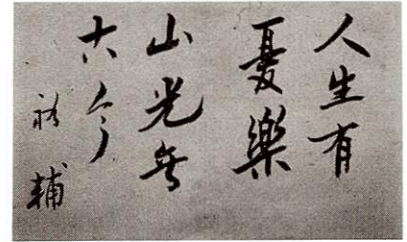 人生有
憂樂
山光無
古今
裕輔